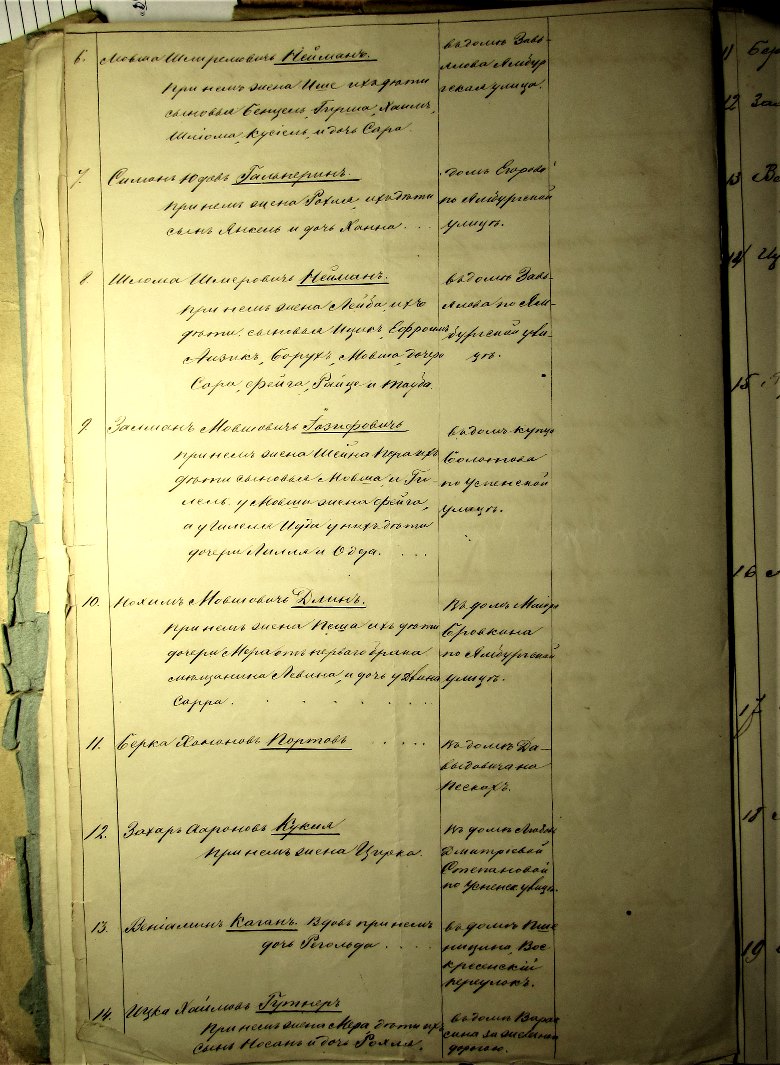 6. Мовша Шмеревичъ Нейманъ.
при немъ жена Ише ихъ дѣти
сыновья Бенцель, Гирша, Хаимъ,
Шліома, Кусіель, и дочь Сара.
въ домѣ Завь-
ялова Амбур
гская улица.
7. Симонъ Юдовъ Гальперинъ.
при немъ жена Рохля, ихъ дѣти
сынъ Янкель и дочь Ханна . . .
домъ Егорова
по Амбургской
улицѣ.
8. Шлома Шмеровичъ Нейманъ.
при немъ жена Лейба, ихъ
дѣти, сыновья Ицикъ, Ефроимъ
Айзикъ, Борухъ, Мовша, дочери
Сара, Фейга, Райце и Тауба
въ домѣ Завь-
ялова по Ам-
бургской ули-
цѣ.
9. Залманъ Мовшовичъ
при немъ жена Шейна Нора ихъ
дѣти сыновья Мовша, и Ги-
лель. у Мовши жена Фейга,
а у Гилеля Ида у нихъ дѣти
дочери Лилля и Одда. . . .
въ домѣ купца
Болотова
по Успенской
улицѣ.
10. Нохимъ Мовшовичъ Длинъ.
при немъ жена Пеша ихъ дѣти
дочери Мера отъ перваго брака
мѣщанина Левина, и дочь у Длина
Сарра. . . . . . .
Въ домѣ Маіора
Бровкина
по Амбургской
улицѣ.
11. Берка Ханоновъ Портовъ . . . . .
Въ домѣ Да-
выдовича на
Пескахъ.
12. Захаръ Аароновъ Кукля
при немъ жена Цирка.
Въ домѣ Любови
Дмитріевой
Степановой
по Успенск улицѣ.
13. Веніаминъ Каганъ. Вдовъ при немъ
дочь Рогольда . . . .
въ домѣ Пше
ницина, Вос
кресенскій
переулокъ.
14. Ицка Хаймовъ Гутнеръ
При немъ жена Мера, дѣти ихъ
сынъ Носанъ и дочь Рохля.
въ домѣ Вара
сина за желѣзной
дорогою.
11 Бер
12 За
13 Во
14 Иц
15
16
17
18
19